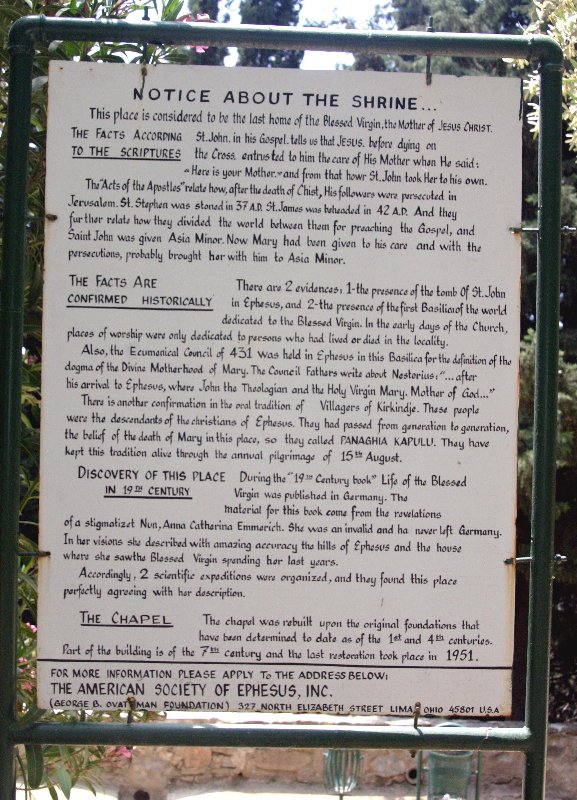 NOTICE ABOUT THE SHRINE...
This place is considered to be the last home of the Blessed Virgin, the Mother of JESUS CHRIST.
THE FACTS ACCORDING St. John. in his Gospel. tells us that JESUS. before dying on
TO THE SCRIPTURES the Cross. entrusted to him the care of His Mother when He said:
"Here is your Mother." and from that howr St. John took Her to his own.
The "Acts of the Apostles" relate how, after the death of Chist, His followers were persecuted in
Jerusalem. St. Stephen was stoned in 37 A.D. St. James was beheaded in 42 A.D. And they
further relate how they divided the world between them for preaching the Gospel, and
Saint John was given Asia Minor. Now Mary had been given to his care and with the
persecutions, probably brought her with him to Asia Minor.
THE FACTS ARE There are 2 evidences: 1-the presence of the tomb Of St. John
CONFIRMED HISTORICALLY in Ephesus, and 2-the presence of the first Basilica of the world
dedicated to the Blessed Virgin. In the early days of the Church,
places of worship were only dedicated to persons who had lived or died in the locality.
Also, the Ecumenical Council of 431 was held in Ephesus in this Basilica for the definition of the
dogma of the Divine Motherhood of Mary. The Council Fathers write about Nestorius: "... after
his arrival to Ephesus, where John the Theologian and the Holy Virgin Mary. Mother of God..."
There is another confirmation in the oral tradition of Villagers of Kirkindje. These people
were the descendants of the christians of Ephesus. They had passed from generation to generation,
the belief of the death of Mary in this place, so they called PANAGHIA KAPULU. They have
kept this tradition alive through the annual pilgrimage of 15th August.
DISCOVERY OF THIS PLACE During the "19TH Century book" Life of the Blessed
IN 19TH CENTURY Virgin was published in Germany. The
material for this book come from the revelations
of a stigmatizet Nun, Anna Catherina Emmerich. She was an invalid and ha never left Germany.
In her visions she described with amazing accuracy the hills of Ephesus and the house
where she saw the Blessed Virgin spending her last years.
Accordingly, 2 scientific expeditions were organized, and they found this place
perfectly agreeing with her description.
THE CHAPEL The chapel was rebuilt upon the original foundations that
have been determined to date as of the 1st and 4th centuries.
Part of the building is of the 7th century and the last restoration took place in 1951.
FOR MORE INFORMATION PLEASE APPLY TO THE ADDRESS BELOW:
THE AMERICAN SOCIETY OF EPHESUS, INC.
(GEORGE B. QVAT MAN FOUNDATION) 327 NORTH ELIZABETH STREET LIMA OHIO 45801 U.S.A